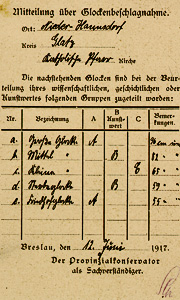 Mitteilung über Glockenbeschlagnahme.
Ort: Nieder-Hannsdorf
Kreis Glatz
Katholische Pfarr Kirche
Die nachstehenden Glocken sind bei der Beur-
teilung ihres wissenschaftlichen, geschichtlichen oder
Kunstwertes folgenden Gruppen zugeteilt worden:
Nr. Bezeichnung A B C Bemer-
Kunst- kungen.
wert
a. Große Glocke A
b. Mittel " B 82 "
c. Kleine " C 65 "
d. Sterbeglocke B 59 "
e. A 55 "
Breslau, den 12. Juni 1917.
Der Provinzialkonservator
als Sachverständiger.